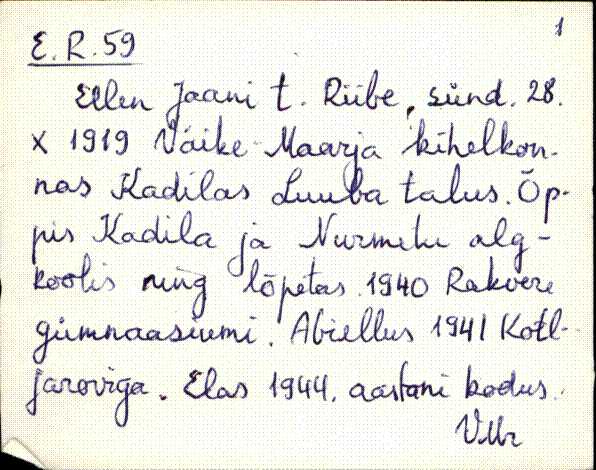 1
E. R. 59
Ellen Jaani t. Riibe, sünd. 28.
X 1919 Väike-Maarja kihelkon-
nas Kadilas Luuba talus. Õp-
pis Kadila ja Nurmetu alg-
koolis ning lõpetas 1940 Rakvere
gümnaasiumi. Abiellus 1941 Kotl-
jaroviga. Elas 1944. aastani kodus.